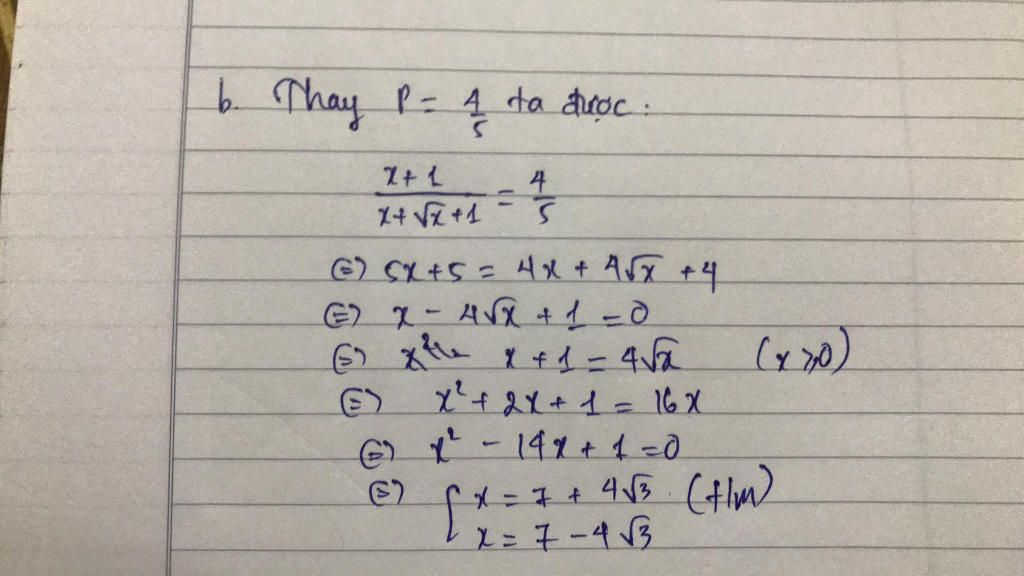 b. Thay P = 4/5 ta được:
(x+1)/(x+√x+1) = 4/5
⇔ 5x+5 = 4x + 4√x + 4
⇔ x - 4√x + 1 = 0
⇔ x + 1 = 4√x (x ≥ 0)
⇔ x² + 2x + 1 = 16x
⇔ x² - 14x + 1 = 0
⇔ { x = 7 + 4√3 (t/m)
x = 7 - 4√3